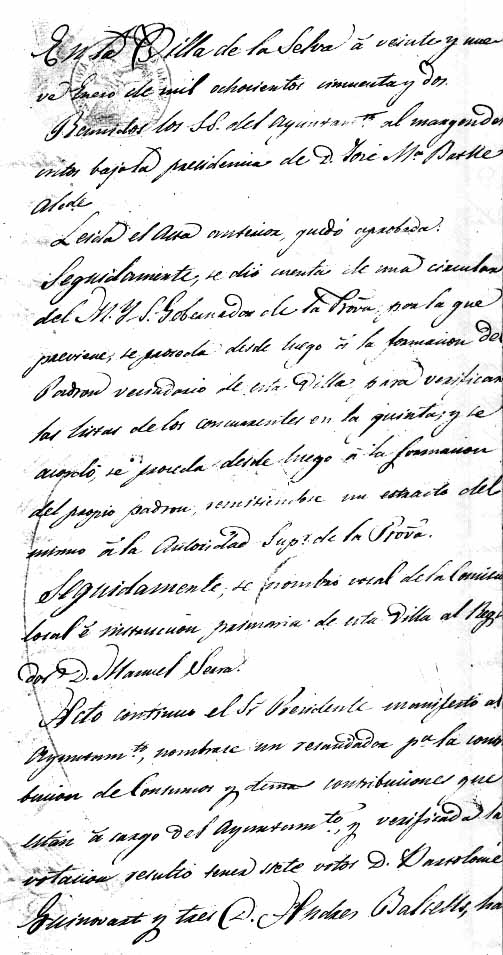 En la Villa de la Selva á veinte y nue
ve Enero de mil ochocientos cincuenta y dos
Reunidos los SS. del Ayuntamto al margen des
critos bajo la presidencia de D. José Ma
Alcde
Leida el Acta anterior, quedó aprobada.
Seguidamente, se dió cuenta de una circular
del M. Y. S. Gobernador de la Prova, por la que
previene, se proceda desde luego á la formacion del
Padron vecindario de esta Villa, para verificar
las listas de los concurrentes en la quinta; y se
acordó, se proceda desde luego á la formacion
del propio padron, remitiendose un estracto del
mismo á la Autoridad Supr de la Prova.
Seguidamente, se nombró vocal de la Comision
local é instruccion primaria de esta Villa al Regi
dor D. Manuel Serra.
Acto continuo el Sr Presidente manifestó al
Ayuntamto, nombrase un recaudador pa la contri
bucion de Consumos y demas contribuciones que
están á cargo del Ayuntamto, y verificada la
votacion resultó tener siete votos D. Bartolomé
Guinovart y tres D. Andres Balcells, ha